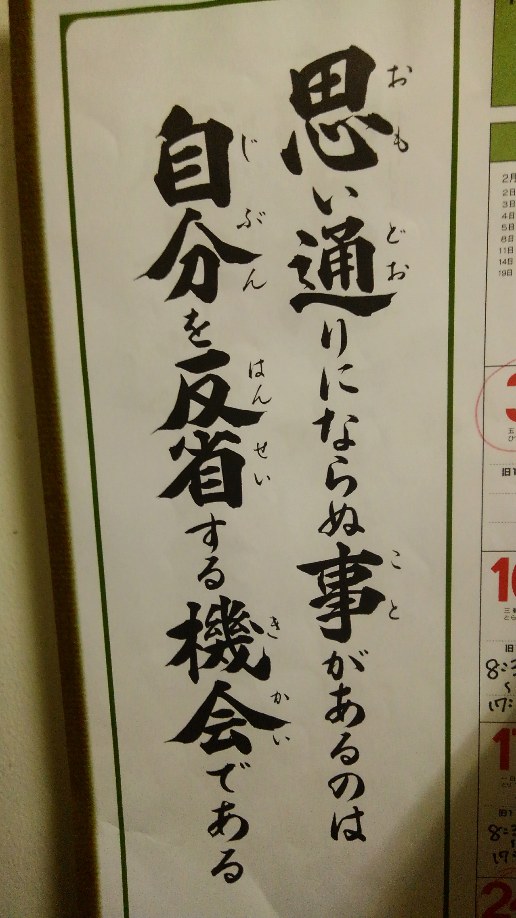 思い通りにならぬ事があるのは
自分を反省する機会である
おも
どお
こと
じぶん
はんせい
きかい
2月
2日
3日
4日
5日
8日
11日
14日
19日
旧
8:3
17: